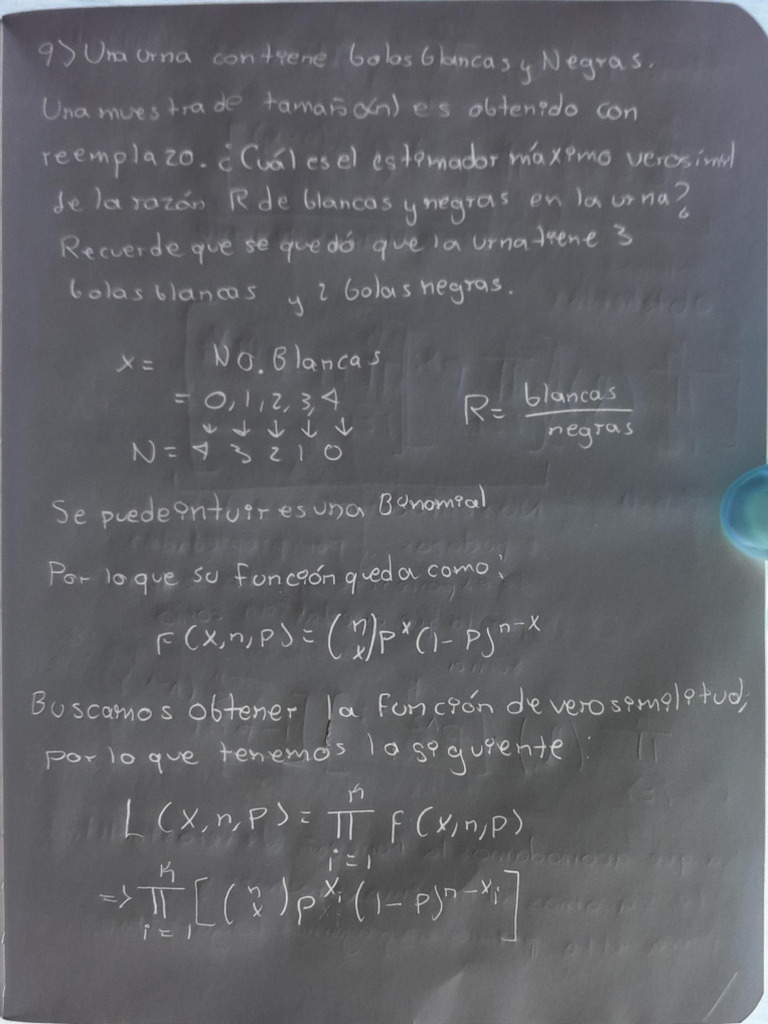 9) Una urna contiene bolas blancas y Negras.
Una muestra de tamaño(n) es obtenido con
reemplazo. ¿Cuál es el estimador máximo verosímil
de la razón R de blancas y negras en la urna?
Recuerde que se quedó que la urna tiene 3
bolas blancas y 2 bolas negras.
x = No. Blancas
= 0, 1, 2, 3, 4
↓ ↓ ↓ ↓ ↓
N = 4 3 2 1 0
R = blancas / negras
Se puede intuir es una Binomial
Por lo que su función queda como:
F(x, n, p) = (n x) p^x (1 - p)^{n-x}
Buscamos obtener la función de verosimilitud,
por lo que tenemos lo siguiente:
L(x, n, p) = ∏_{i=1}^{n} f(x, n, p)
=> ∏_{i=1}^{n} [(n x) p^{x_i} (1 - p)^{n-x_i}]